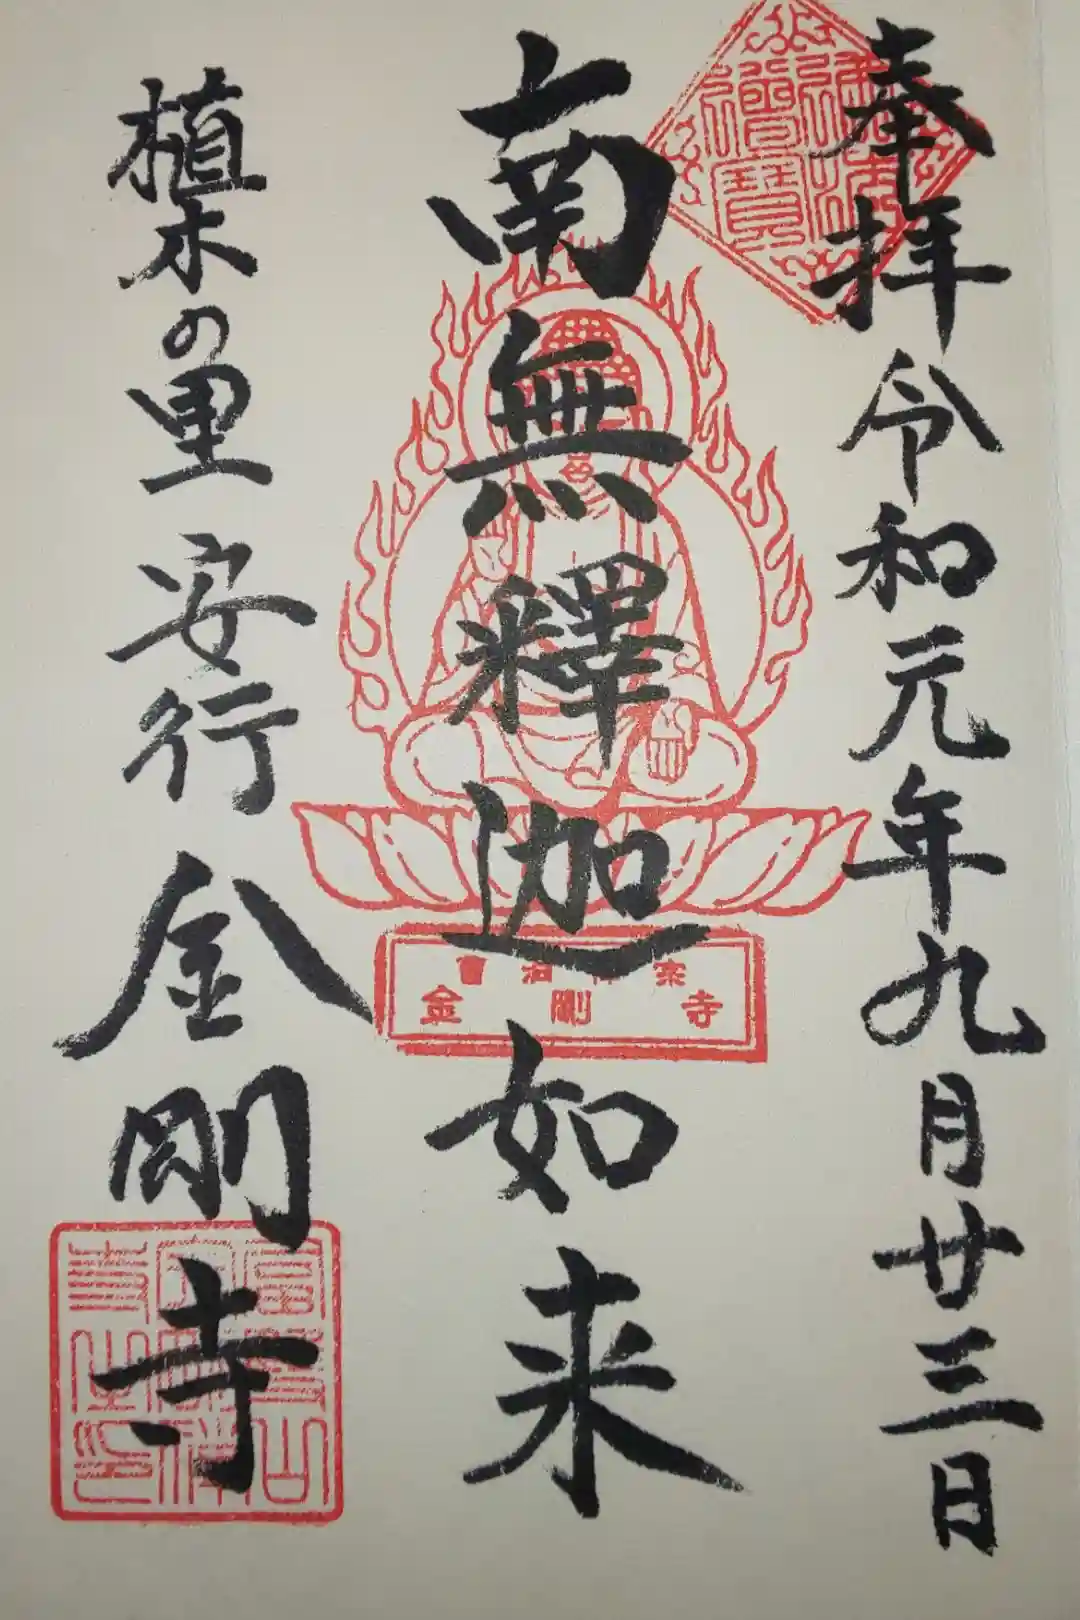 奉拝 令和元年九月廿三日
南無釋迦如来
植木の里 安行 金剛寺
曹洞禅宗
金剛寺